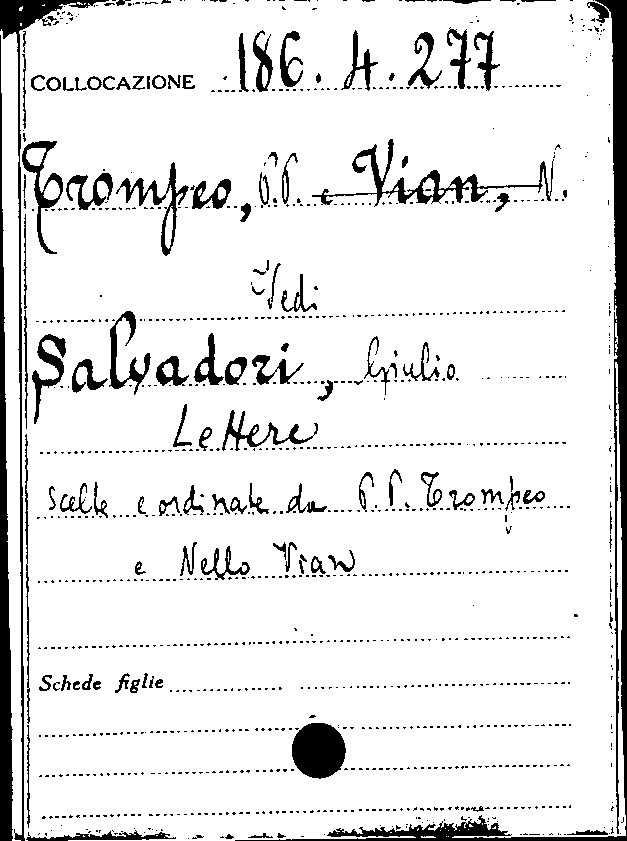 COLLOCAZIONE 186.4.277
Trompeo, P.P. e Vian, N.
Vedi
Salvadori, Giulio
Lettere
scelte e ordinate da P.P. Trompeo
e Nello Vian
Schede figlie